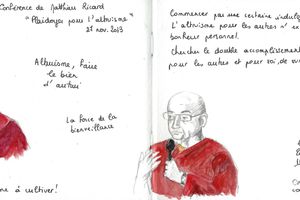 Conférence de Matthieu Ricard
"Plaidoyer pour l'altruisme"
27 nov. 2013
Altruisme, faire
le bien
d'autrui
La force de la
bienveillance
à cultiver!
Commencer par une certaine indulg
L'altruisme pour les autres n'
bonheur personnel.
Chercher le double accomplissement
pour les autres et pour soi, de